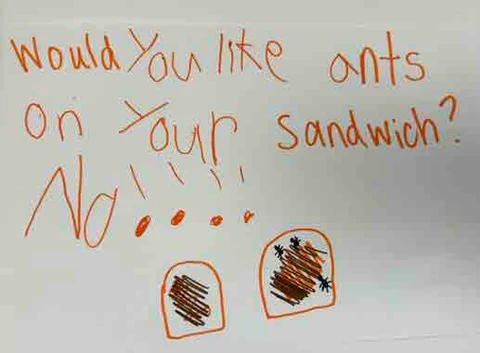 Would You like ants
on Your Sandwich?
No!!!!